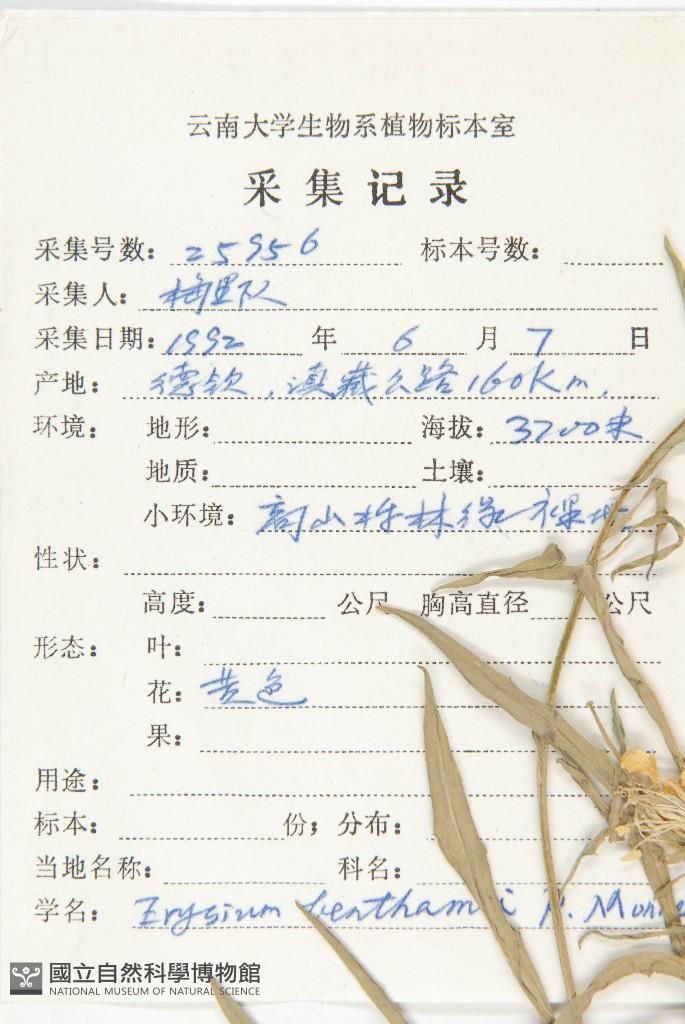 云南大学生物系植物标本室
采集记录
采集号数: 25956 标本号数:
采集人: 梅里队
采集日期: 1992 年 6 月 7 日
产地: 德钦, 滇藏公路160Km,
环境: 地形: 海拔: 3200米
地质: 土壤:
小环境: 高山栎林缘
性状:
高度: 公尺 胸高直径 公尺
形态: 叶:
花: 黄色
果:
用途:
标本: 份; 分布:
当地名称: 科名:
学名: Erysium benthamii P. Monn
國立自然科學博物館
NATIONAL MUSEUM OF NATURAL SCIENCE